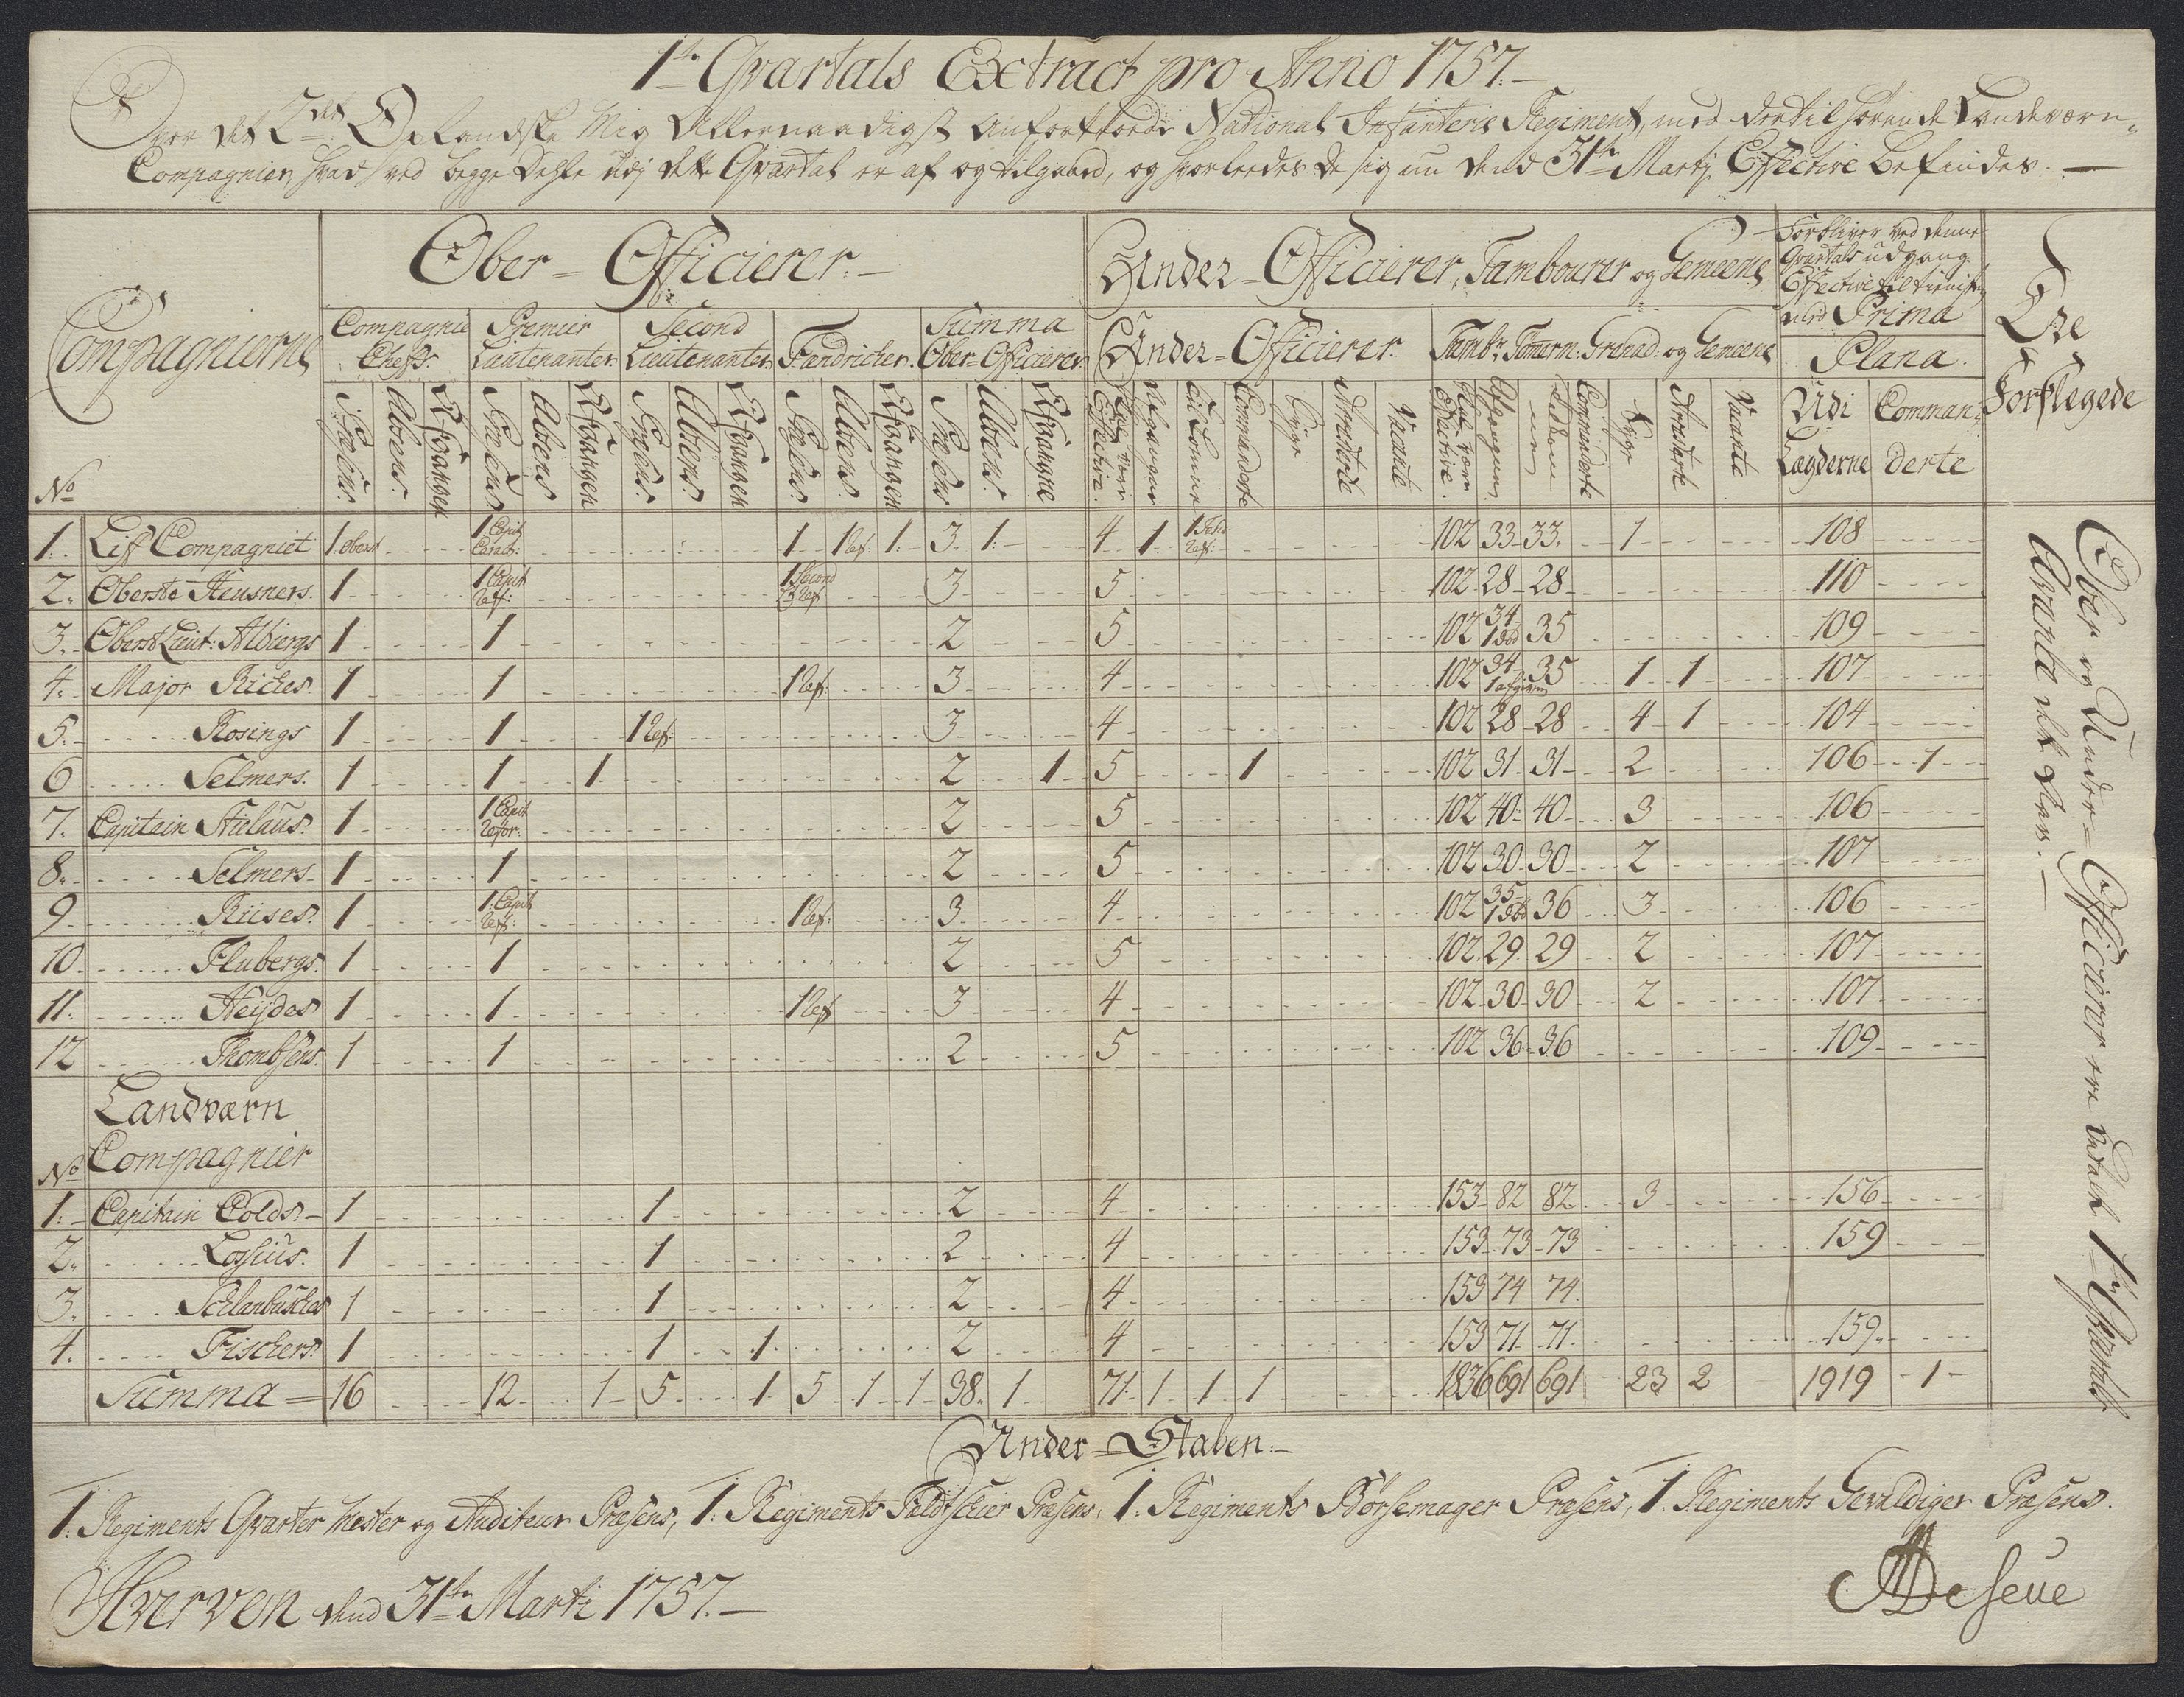 1ste Qvartals Extract pro Anno 1757.
Over det 2det Oplandske Mig Allernaadigst anfortroede National Infanterie Regiment, med dertil hørende Landeværn-
Compagnier, hvad ved begge deslte udj dette Qvartal er af og tilgaaed, og hvorleedes de sig nu dend 31te Martij Effective befindes.
Compagnierne
No
Ober-Officierer.
Under-Officierer, Tambourer og Gemeene
Forbliver ved denne Qvartals udgang Effective til tieniste med Prima Plana.
Ere Forflegede
Compagnie Chefs. Premier Lieutenanter. Second Lieutenanter. Fændricher. Summa Ober-Officierer.
Under-Officierer. Tambr. Tømern. Grenad: og Gemeene
Præsens. Absens. Præsens. Absens Præsens. Absens. Præsens. Absens. Præsens Absens.
Effective. Afgangne Commanderte Syge Aresterde Vacante
Effective. Afgangne Commanderte Syge Aresterte Vacante
Udi Lægderne Commanderte
1. Lif Compagniet 1 Oberst 1 Capit Caract: 1 1 Ref: 1 3 1 4 1 1 102 33 33 1 108
2. Oberste Heusners. 1 1 Capit Ref: 1 Second Ref 3 5 102 28 28 110
3. Oberst Lieut: Albiergs 1 1 2 5 102 34 1 død 35 109
4. Major Riches. 1 1 1 Ref: 3 4 102 34 1 afgiven 35 1 1 107
5. Rosings 1 1 1 Ref: 3 4 102 28 28 4 1 104
6 Selmers. 1 1 1 2 1 5 1 102 31 31 2 106 1
7. Capitain Niclaus. 1 1 Capit Refor: 2 5 102 40 40 3 106
8. Selmers 1 1 2 5 102 30 30 2 107
9 Riises. 1 1 Capit Ref: 1 Ref: 3 4 102 35 1 død 36 3 106
10 Flubergs. 1 1 2 5 102 29 29 2 107
11. Heijdes 1 1 1 Ref 3 4 102 30 30 2 107
12 Thombsens. 1 1 2 5 102 36 36 109
Landværn
No Compagnier
1. Capitain Colds. 1 1 2 4 153 82 82 3 156
2. Lossius. 1 1 2 4 153 73 73 159
3. Schlanbusches 1 1 2 4 153 74 74
4. Fischers. 1 1 1 2 4 153 71 71 159
Summa 16 12 1 5 1 5 1 1 38 1 71 1 1 1 1836 691 691 23 2 1919 1
Ober og Under-Officierer ere betalt 1te Qvartal
Under-Staben.
1. Regiments Qvarter Mester og Auditeur Præsens, 1. Regiments Feldtskier Præsens, 1. Regiments Børsemager Præsens, 1. Regiments Gevaldiger Præsens.
Hverven dend 31te Marti 1757.
De Seue